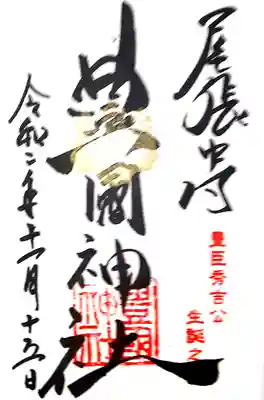 尾張中村
豊臣秀吉公
生誕之
豊國神社
令和二年十一月十五日